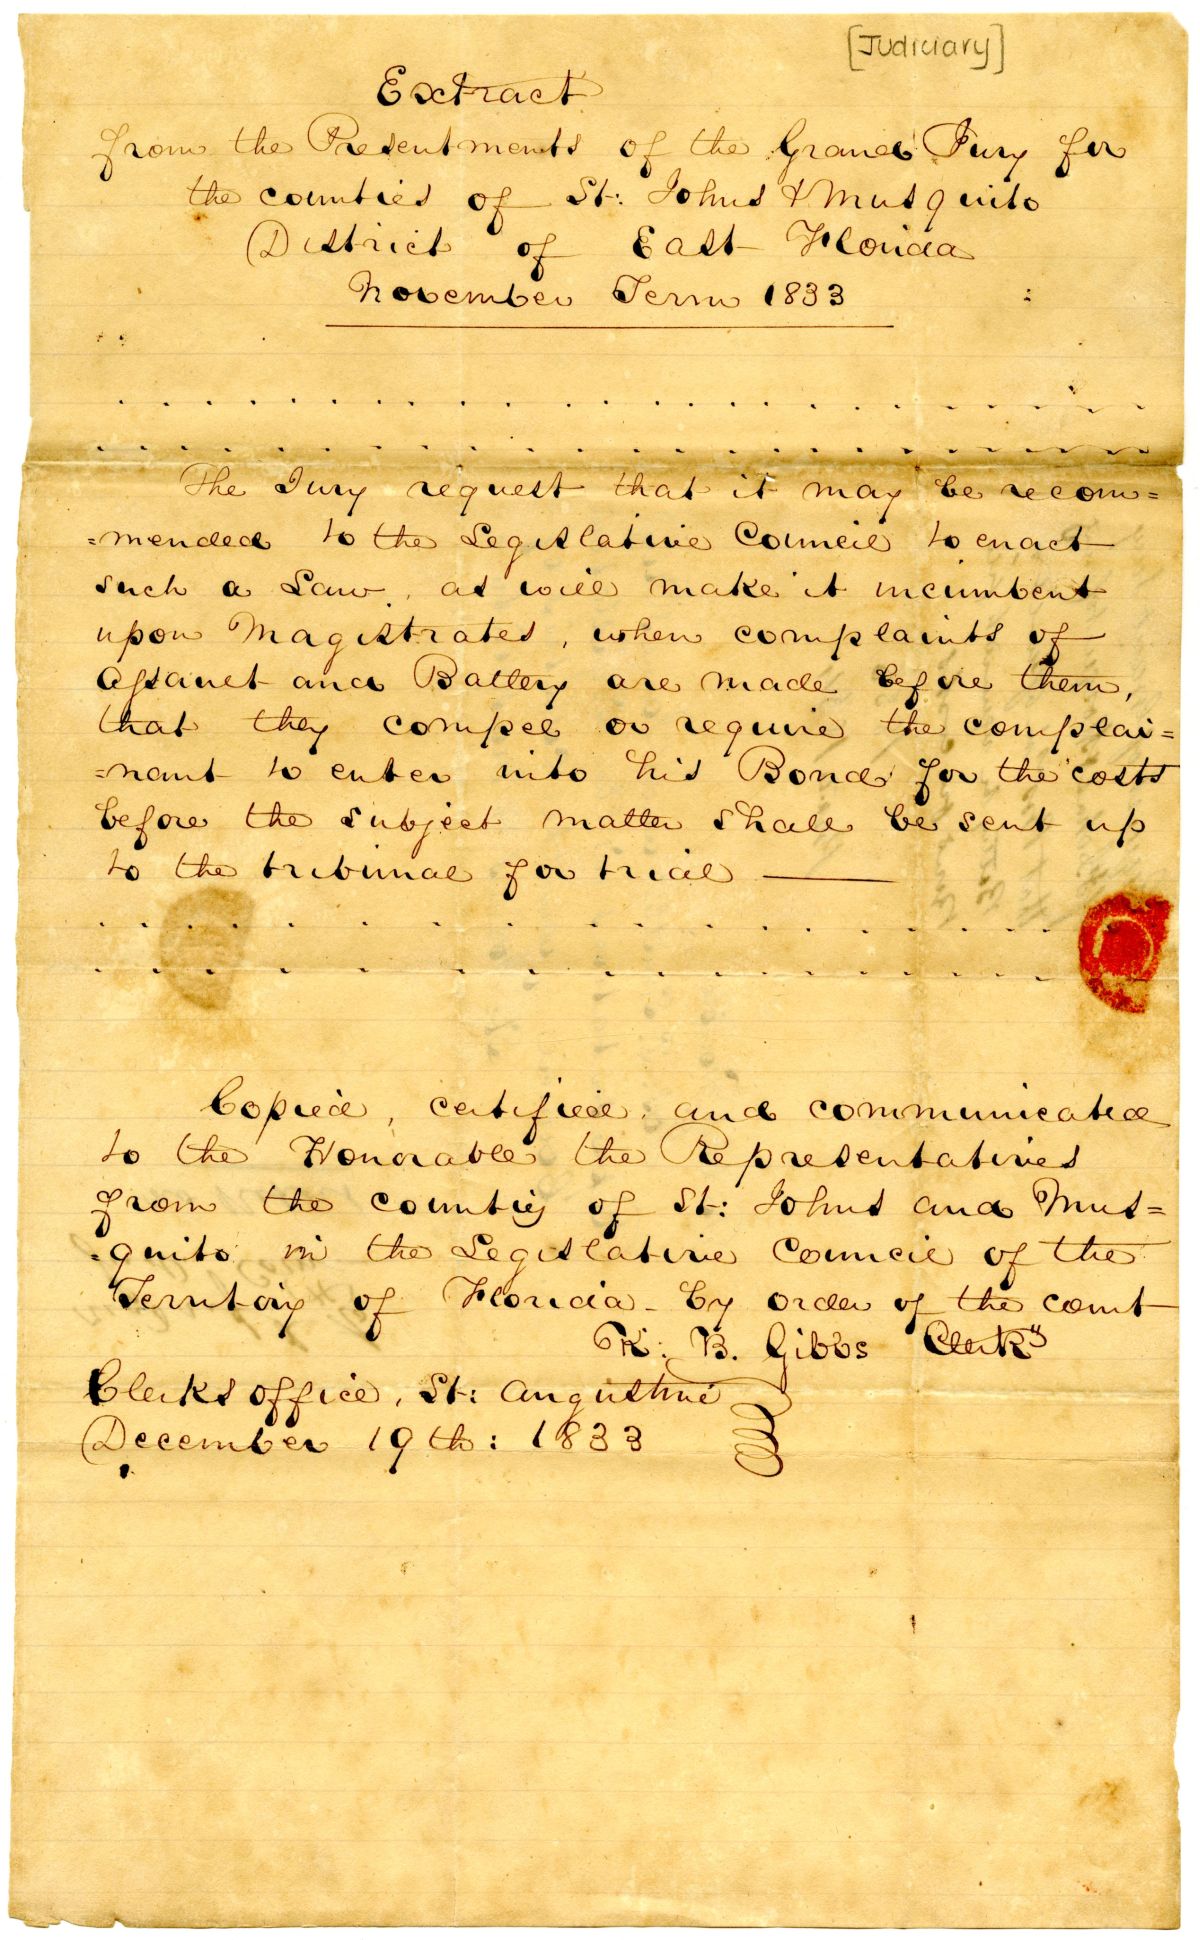 [Judiciary]
Extract
from the Presentments of the Grand Jury for
the counties of St: Johns & Musquito
District of East Florida
November Term 1833
The Jury request that it may be recom=
=mended to the Legislative Council to enact
such a Law, as will make it incumbent
upon Magistrates, when complaints of
Assault and Battery are made before them,
that they compel or require the complai=
=nant to enter into his Bond for the costs
before the subject matter shall be sent up
to the tribunal for trial ——
Copied, certified, and communicated
to the Honorable the Representatives
from the counties of St: Johns and Mus=
=quito in the Legislative Council of the
Territory of Florida - by order of the court
K. B. Gibbs Clerk
Clerks office, St: Augustine
December 19th: 1833